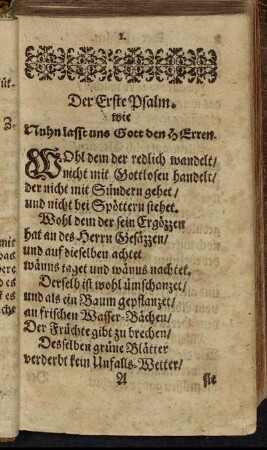 1.
Der Erste Psalm.
wie
Nuhn lasst uns Gott den HErren.
WOhl dem der redlich wandelt/
nicht mit Gottlosen handelt/
der nicht mit Sündern gehet/
und nicht bei Spöttern stehet.
Wohl dem der sein Ergözzen
hat an des Herrn Gesäzzen/
und auf dieselben achtet
wänns taget und wänns nachtet.
Derselb ist wohl ümschanzet/
und als ein Baum gepflanzet/
an frischen Wasser-Bächen/
Der Früchte gibt zu brechen/
Desselben grüne Blätter
verderbt kein Unfalls-Wetter/
A sie